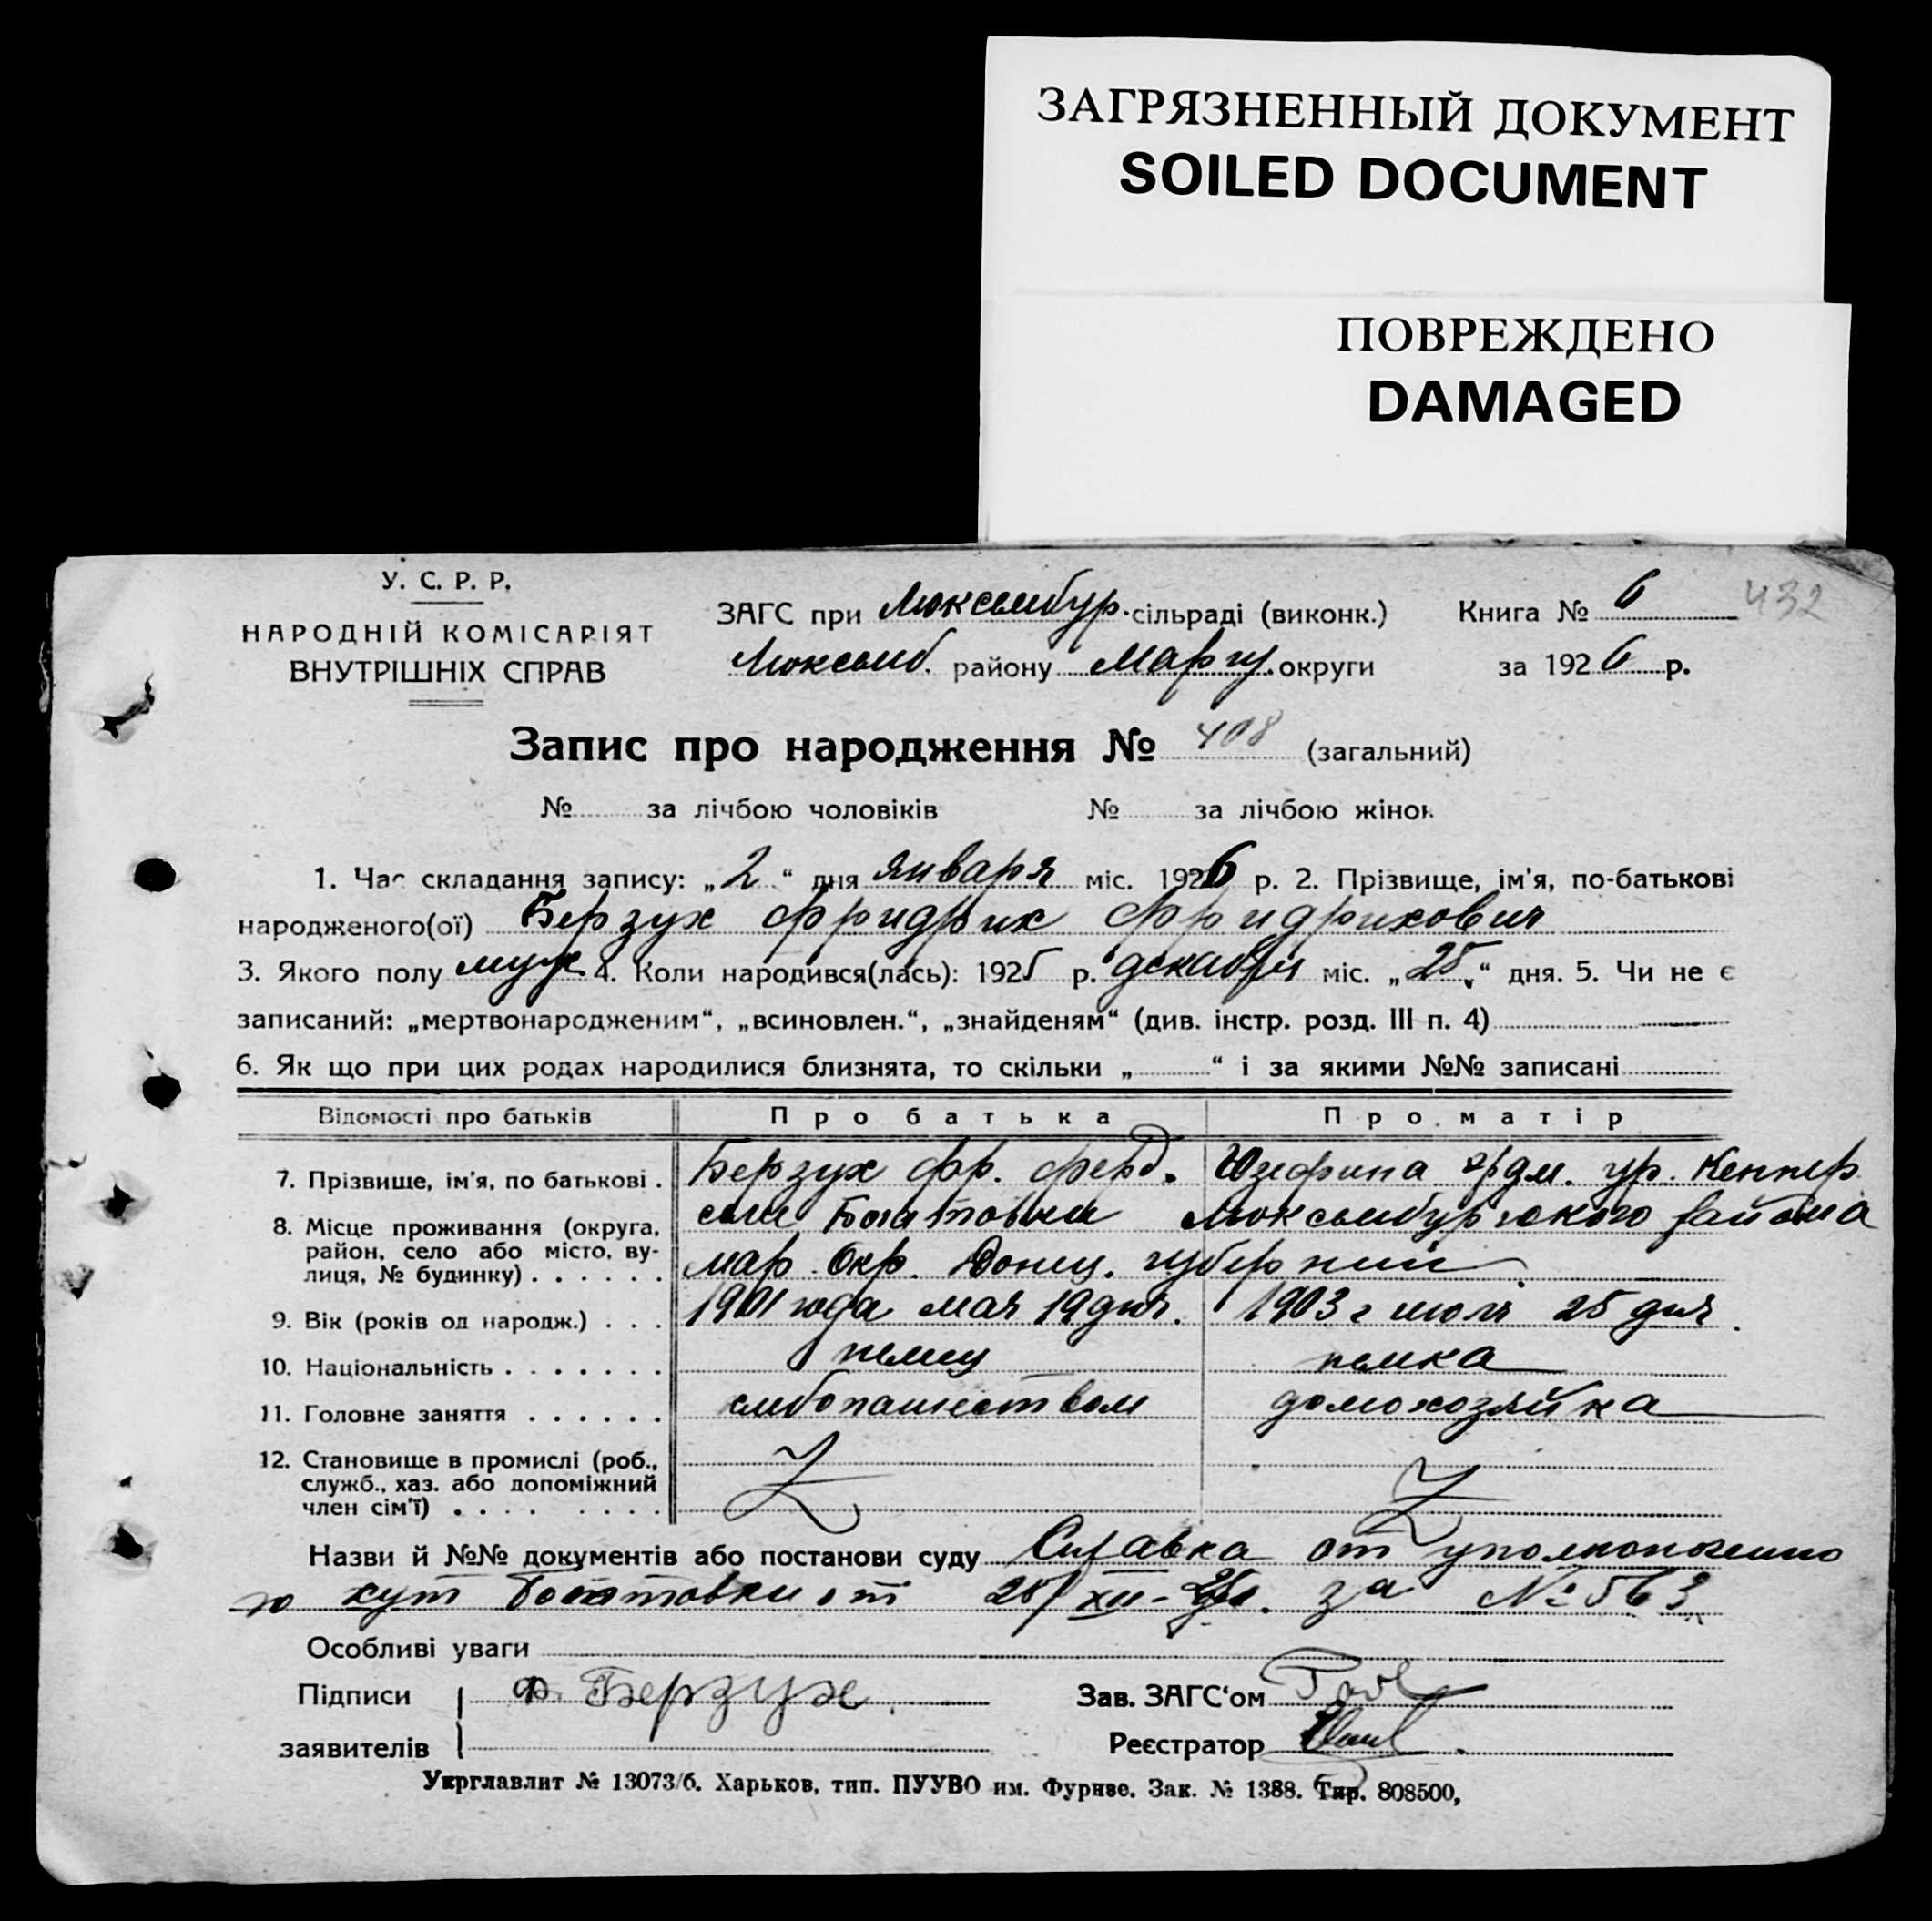 ЗАГРЯЗНЕННЫЙ ДОКУМЕНТ
SOILED DOCUMENT
ПОВРЕЖДЕНО
DAMAGED
У. С. Р. Р.
НАРОДНІЙ КОМІСАРІЯТ
ВНУТРІШНІХ СПРАВ
ЗАГС при Люксембур. сільраді (виконк.)
Люксемб. району Мариу. округи
Книга № 6 432
за 1926 р.
Запис про народження № 408 (загальний)
№ за лічбою чоловіків № за лічбою жінок
1. Час складання запису: „2“ дня января міс. 1926 р. 2. Прізвище, ім'я, по-батькові
народженого(ої) Берзух Фридрик Фридрихович
3. Якого полу муж 4. Коли народився(лась): 1925 р. декабря міс. „25“ дня. 5. Чи не є
записаний: „мертвонародженим“, „всиновлен.“, „знайденям“ (див. інстр. розд. III п. 4)
6. Як що при цих родах народилися близнята, то скільки „ “ і за якими №№ записані
Відомості про батьків Про батька Про матір
7. Прізвище, ім'я, по батькові . Берзух Фр. Ферд. Юзефина ур. Кеннер
8. Місце проживання (округа, район, село або місто, вулиця, № будинку) . . . . . . села Богатовки Люксембургского района
мар. Окр. Донец. губернии
9. Вік (років од народж.) . . . 1901 года мая 19 дня. 1903 г июля 25 дня.
10. Національність . . . . . . . немец немка
11. Головне заняття . . . . . . хлебопашеством домохозяйка
12. Становище в промислі (роб., служб., хаз. або допоміжний член сім'ї) . . . . . . . .
Назви й №№ документів або постанови суду Справка от уполномоченно
го хут Богатовки от 25/XII- за № 563
Особливі уваги
Підписи Ф. Берзух Зав. ЗАГС'ом
заявителів Реєстратор
Укрглавлит № 13073/6. Харьков, тип. ПУУВО им. Фрунзе. Зак. № 1388. Тир. 808500,